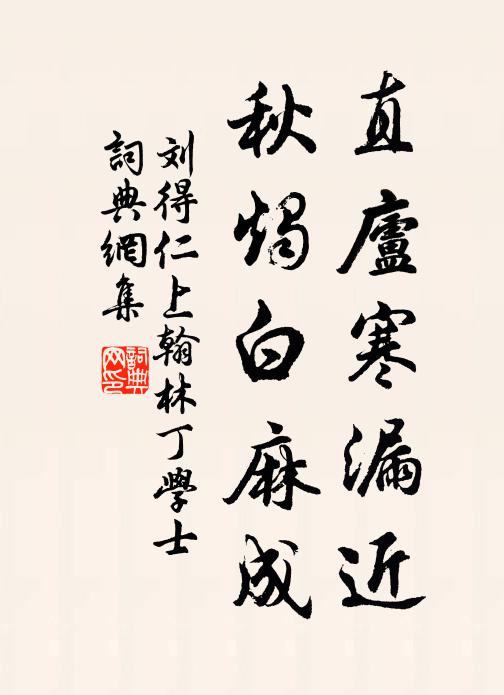 直廬寒漏近
秋燭白麻成
刘得仁上翰林丁學士
詞典網集
詞典网印